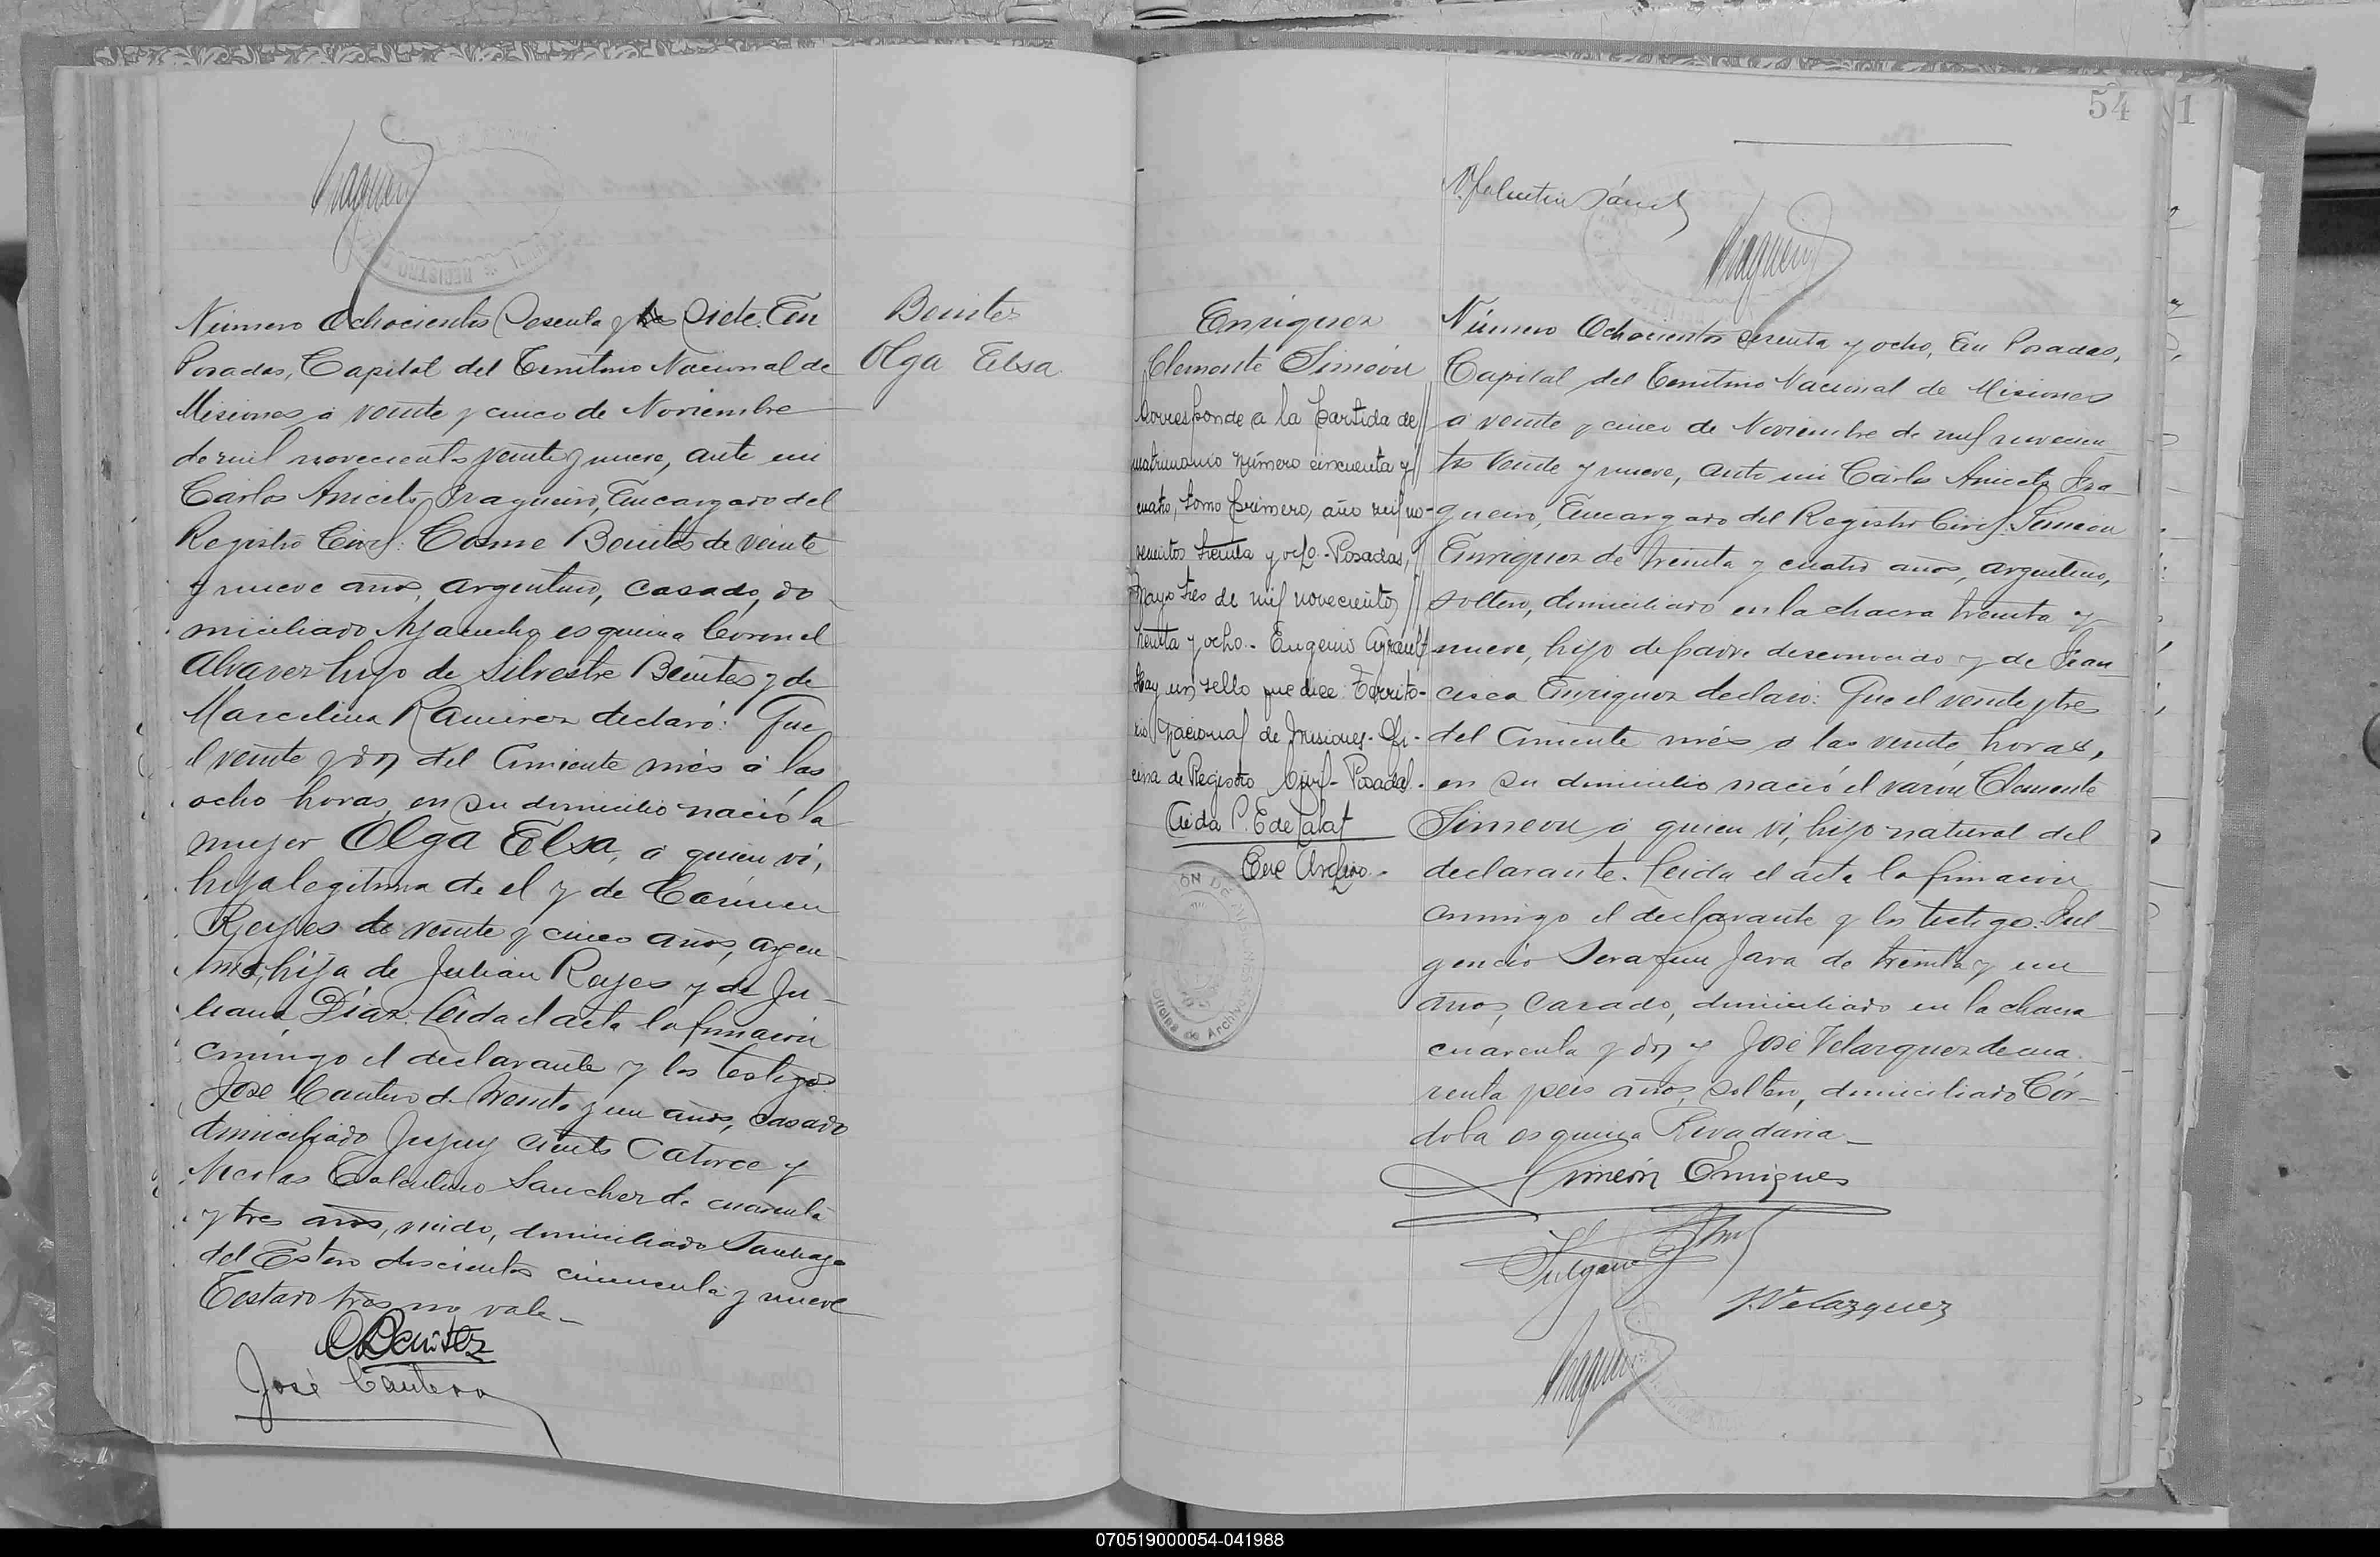 Número Ochocientos Sesenta y tres Siete. En
Posadas, Capital del Territorio Nacional de
Misiones a veinte y cinco de Noviembre
de mil novecientos veinte y nueve, ante mi
Carlos Aniceto Fragueiro, Encargado del
Registro Civil: Cosme Benites de veinte
y nueve años, argentino, casado, do
miciliado Ayacucho esquina Coronel
Alvarez hijo de Silvestre Benites y de
Marcelina Ramirez declaró: Que
el veinte y dos del corriente mes a las
ocho horas, en su domicilio nació la
mujer Olga Elsa, a quien vi,
hija legitima de el y de Carmen
Reyes de veinte y cinco años, argen
tina, hija de Julian Reyes y de Ju-
liana Diaz. Leida el acta la firmaron
conmigo el declarante y los testigos
José Cantero de treinta y un años, casado
domiciliado Jujuy ciento catorce y
Nicolas Sanchez de cuarenta
y tres años, viudo, domiciliado Santiago
del Estero doscientos cincuenta y nueve
Testado tres no vale-
C Benitez
José Cantero
Benites
Olga Elsa
54
1
N. Valentin Sánchez
Enriquez
Clemente Simeón
Corresponde a la partida de
matrimonio número cincuenta y
cuatro, tomo primero, año mil no-
vecientos treinta y ocho. Posadas,
Mayo tres de mil novecientos
treinta y ocho. Eugenio
Hay un sello que dice: Territo-
rio Nacional de Misiones. Ofi-
cina de Registro Civil. Posadas.
Aida P. E de
Archivo.
Oficina de Archivo
Número Ochocientos sesenta y ocho, En Posadas,
Capital del Territorio Nacional de Misiones
a veinte y cinco de Noviembre de mil novecien
tos veinte y nueve, ante mi Carlos Aniceto Fra-
gueiro, Encargado del Registro Civil: Simeon
Enriquez de treinta y cuatro años, argentino,
soltero, domiciliado en la chacra treinta y
nueve, hijo de padre desconocido y de Fran
cisca Enriquez declaró: Que el veinte y tres
del corriente mes a las veinte horas,
en su domicilio nació el varón Clemente
Simeon a quien vi, hijo natural del
declarante. Leida el acta la firmaron
conmigo el declarante y los testigos: Ful-
gencio Serafin Jara de treinta y un
años, casado, domiciliado en la chacra
cuarenta y dos y José Velazquez de cua-
renta y seis años, soltero, domiciliado Cór-
doba esquina Rivadavia-
Simeón Enriquez
J. Velazquez
070519000054-041988